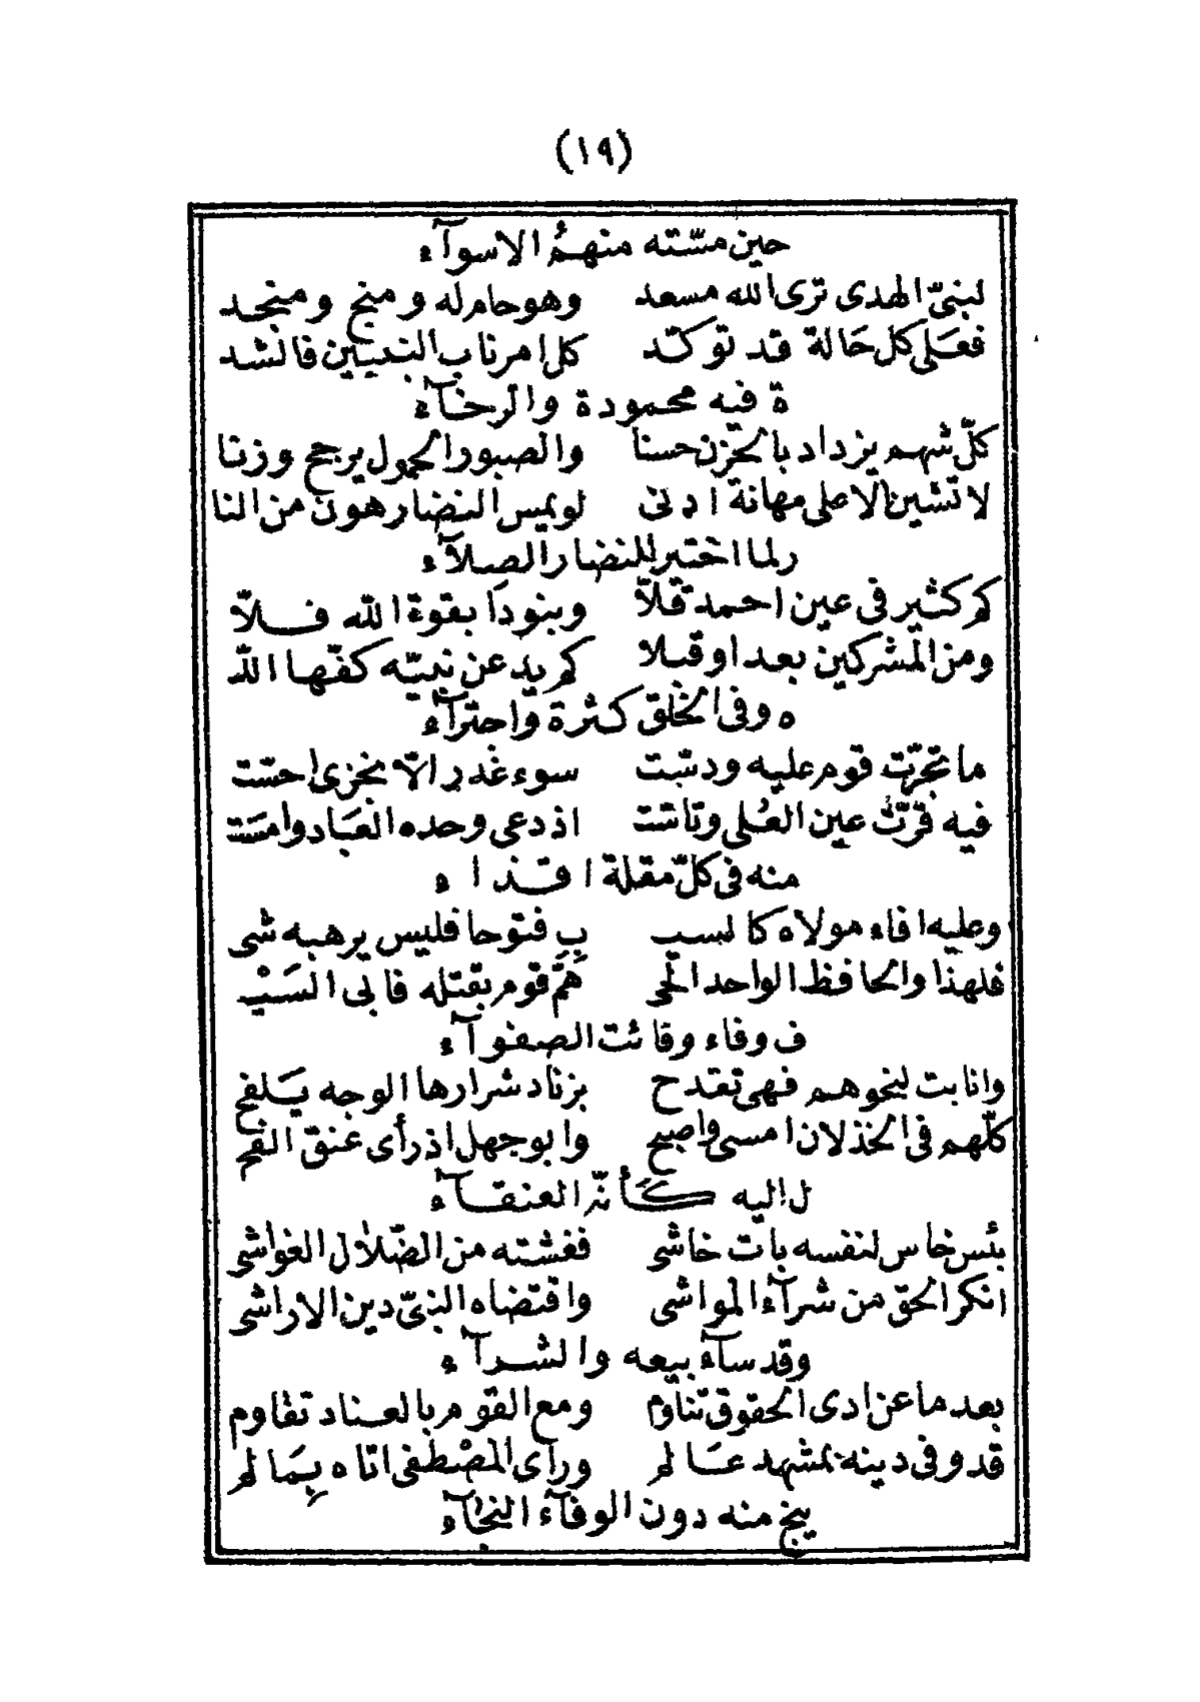 (١٩)
حين مسّته منهمُ الاسوآء
لنبيّ الهدى ترى الله مسعد وهو حام له و منج و منجد
فعلى كل حالة قد توكّد كل امر ناب النبيين فالشد
ة فيه محمودة والرخآء
كلّ شهم يزداد بالحزن حسنا والصبور الحمول يرجح وزنا
لا تشين الاعلى مهانة ادنى لو يمس النضار هون من النا
ر لما اختير للنضار الصلآء
كم كثير في عين احمد قلّا وبنودا بقوة الله فلّا
ومن المشركين بعدا وقبلا كم يد عن نبيّه كفّها اللّه
ه وفي الخلق كثرة واجترآء
ما تجرّت قوم عليه ودسّت سوء غدر الّا بخزى احسّت
فيه قرّت عين العُلى وتاسّت اذ دعى وحده العَباد وامست
منه في كلّ مقلة اقذاء
وعليه افاء مولاه كالسب بِ فتوحا فليس يرهبه شى
فلهذا والحافظ الواحد الحى هَمّ قوم بقتله فابى السَيْـ
ف وفاء وفائت الصفوآء
وانابت لنحوهم فهى تقدح بزناد شرارها الوجه يَلفح
كلّهم في الخذلان امسى واصبح وابو جهل اذ رأى عنق الفحـ
ل اليه كأنّه العنقآء
بئس خاس لنفسه بات خاشى فغشته من الضّلال الغواشى
انكر الحق من شرآء المواشى واقتضاه النبيّ دين الاراشى
وقد سآء بيعه والشرآء
بعد ما عن ادى الحقوق تناوم ومع القوم بالعناد تقاوم
قد وفى دينه بمشهد عَالم ورأى المصْطفى اتاه بِمَا لم
ينج منه دون الوفآء النجآء